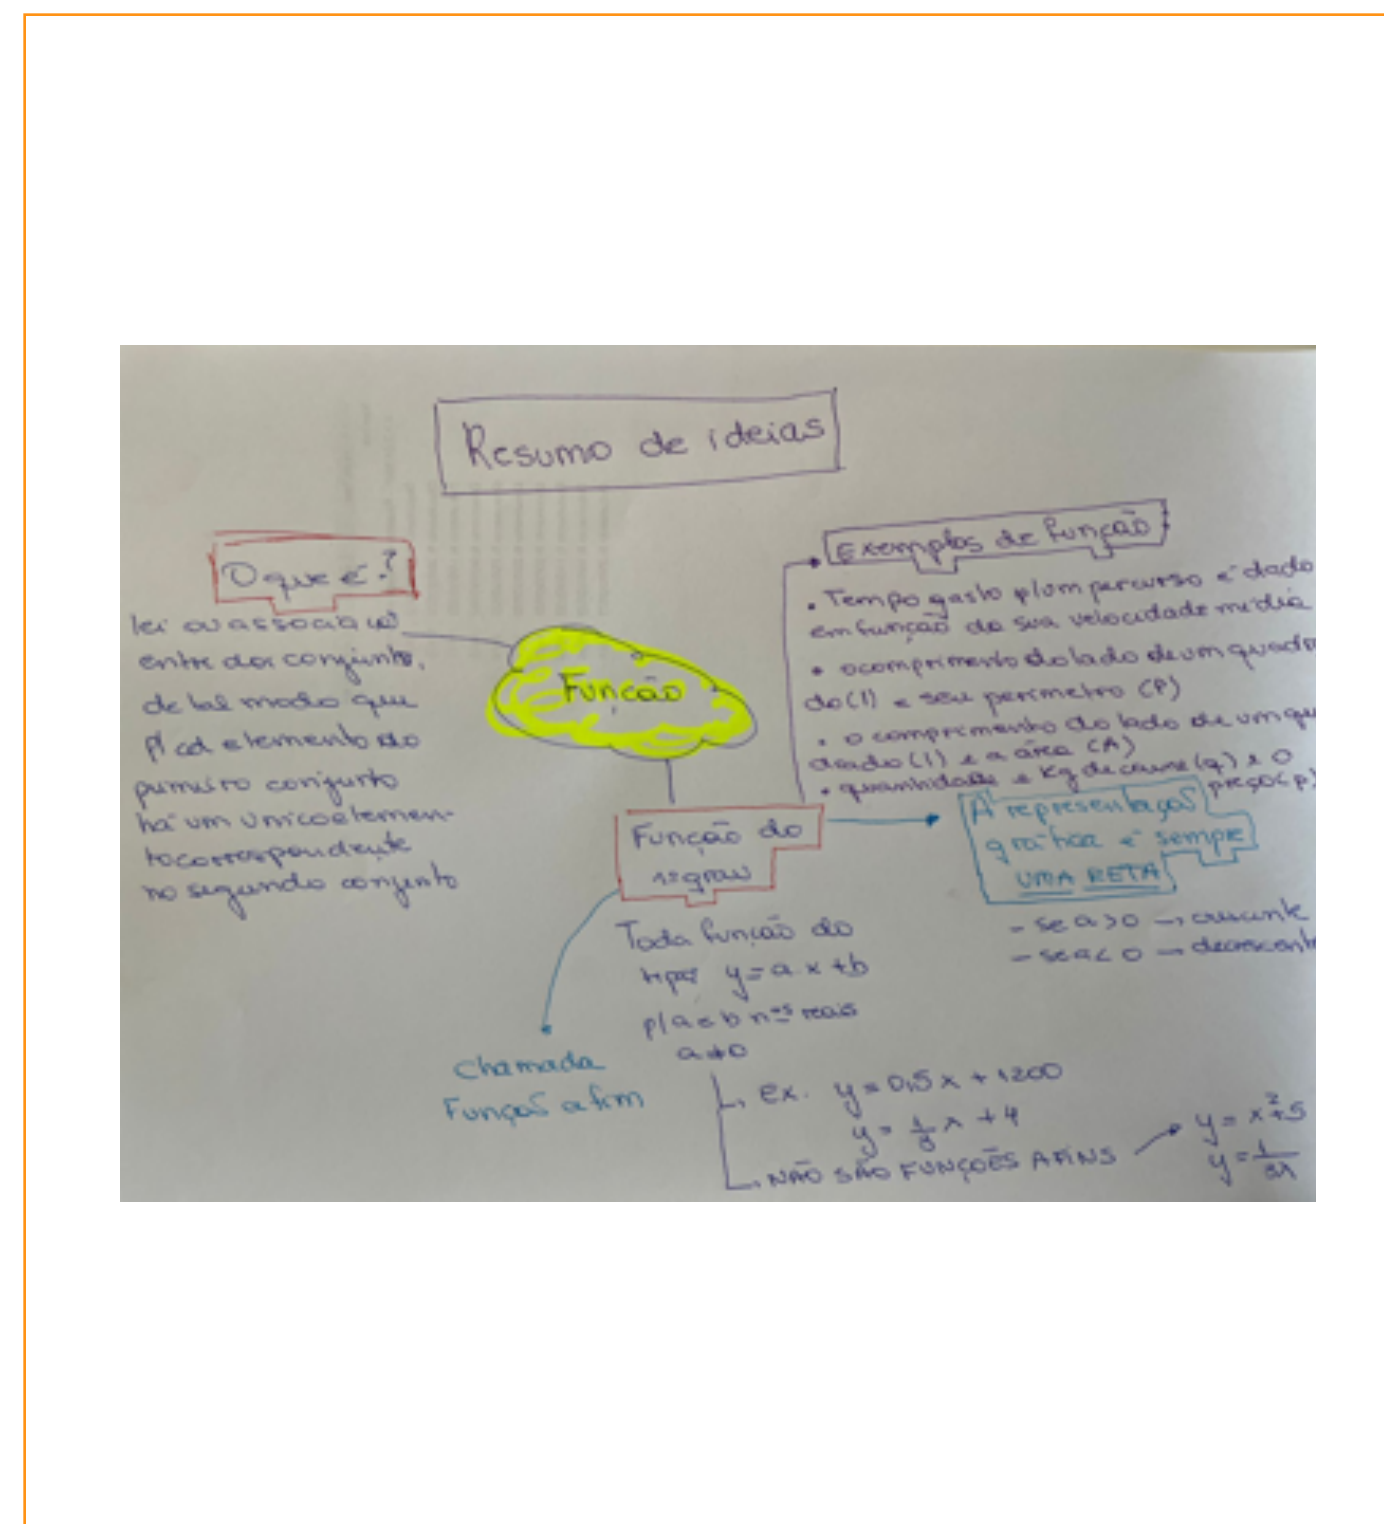 Resumo de ideias
O que é?
lei ou associação
entre dois conjuntos,
de tal modo que
p/ cd elemento do
primeiro conjunto
há um unico elemen-
to correspondente
no segundo conjunto
Função
Exemplos de função
• Tempo gasto p/um percurso é dado
em função da sua velocidade média
• o comprimento do lado de um quadra
do (l) e seu perimetro (P)
• o comprimento do lado de um qua
drado (l) e a área (A)
• quantidade e Kg de carne (q) e o
preço (p)
Função do
1º grau
A representação
gráfica é sempre
UMA RETA
- se a > 0 → crescente
- se a < 0 → decrescente
Toda função do
tipo y = a.x + b
p/ a e b nºs reais
a ≠ 0
Chamada
Função afim
ex. y = 0,5x + 1200
y = 1/3 x + 4
NÃO SÃO FUNÇÕES AFINS
y = x² + 5
y = 1/3x